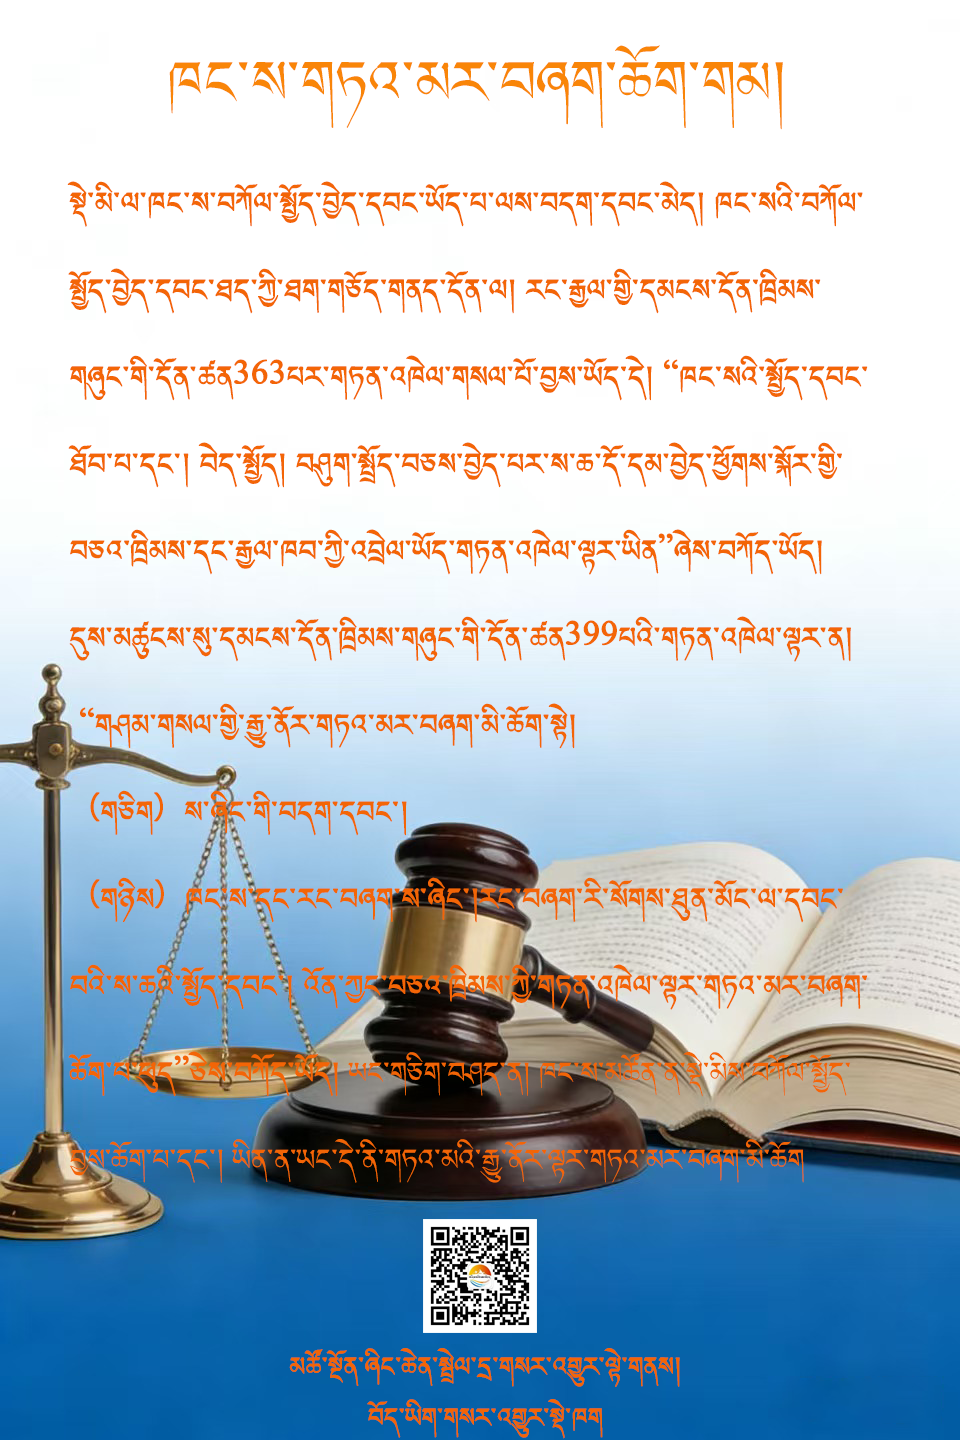 ཁང་ས་གཏའ་མར་བཞག་ཆོག་གམ།
སྡེ་མི་ལ་ཁང་ས་བཀོལ་སྤྱོད་བྱེད་དབང་ཡོད་པ་ལས་བདག་དབང་མེད། ཁང་སའི་བཀོལ་
སྤྱོད་བྱེད་དབང་ཐད་ཀྱི་ཐག་གཅོད་གནད་དོན་ལ། རང་རྒྱལ་གྱི་དམངས་དོན་ཁྲིམས་
གཞུང་གི་དོན་ཚན363པར་གཏན་འཁེལ་གསལ་པོ་བྱས་ཡོད་དེ། “ཁང་སའི་སྤྱོད་དབང་
ཐོབ་པ་དང་། བེད་སྤྱོད། བཤུག་སྤྲོད་བཅས་བྱེད་པར་ས་ཆ་དོ་དམ་བྱེད་ཕྱོགས་སྐོར་གྱི་
བཅའ་ཁྲིམས་དང་རྒྱལ་ཁབ་ཀྱི་འབྲེལ་ཡོད་གཏན་འཁེལ་ལྟར་ཡིན”ཞེས་བཀོད་ཡོད།
དུས་མཚུངས་སུ་དམངས་དོན་ཁྲིམས་གཞུང་གི་དོན་ཚན399པའི་གཏན་འཁེལ་ལྟར་ན།
“གཤམ་གསལ་གྱི་རྒྱུ་ནོར་གཏའ་མར་བཞག་མི་ཆོག་སྟེ།
（གཅིག） ས་ཞིང་གི་བདག་དབང་།
（གཉིས） ཁང་ས་དང་རང་བཞག་ས་ཞིང་།རང་བཞག་རི་སོགས་ཐུན་མོང་ལ་དབང་
བའི་ས་ཆའི་སྤྱོད་དབང་། འོན་ཀྱང་བཅའ་ཁྲིམས་ཀྱི་གཏན་འཁེལ་ལྟར་གཏའ་མར་བཞག་
ཆོག་པ་ཕུད”ཅེས་བཀོད་ཡོད། ཡང་གཅིག་བཤད་ན། ཁང་ས་མཚོན་ན་སྡེ་མིས་བཀོལ་སྤྱོད་
བྱས་ཆོག་པ་དང་། ཡིན་ན་ཡང་དེ་ནི་གཏའ་མའི་རྒྱུ་ནོར་ལྟར་གཏའ་མར་བཞག་མི་ཆོག
མཚོ་སྔོན་ཞིང་ཆེན་སྦྲེལ་དྲ་གསར་འགྱུར་ལྟེ་གནས།
བོད་ཡིག་གསར་འགྱུར་སྡེ་ཁག